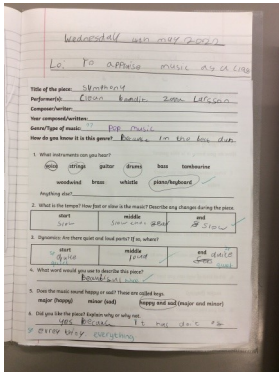 Wednesday 4th may 2022
Lo: To appraise music as a class
Title of the piece: Symphony
Performer(s): Clean bandit Zara Larsson
Composer/writer:
Year composed/written:
Genre/Type of music: pop music
How do you know it is this genre? in the
1. What instruments can you hear?
voice strings guitar drums bass tambourine
woodwind brass whistle piano/keyboard
Anything else?
2. What is the tempo? How fast or slow is the music? Describe any changes during the piece.
start middle end
Slow Slow Slow
3. Dynamics: Are there quiet and loud parts? If so, where?
start middle end
quite loud quite
4. What word would you use to describe this piece?
Beautiful
5. Does the music sound happy or sad? These are called keys.
major (happy) minor (sad) happy and sad (major and minor)
6. Did you like the piece? Explain why or why not.
yes it has
everything